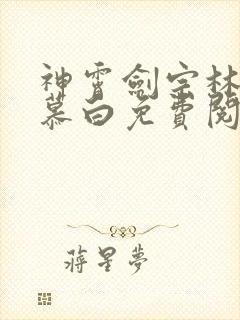 神霄劍宗林
慕白免費閱
蔣星夢